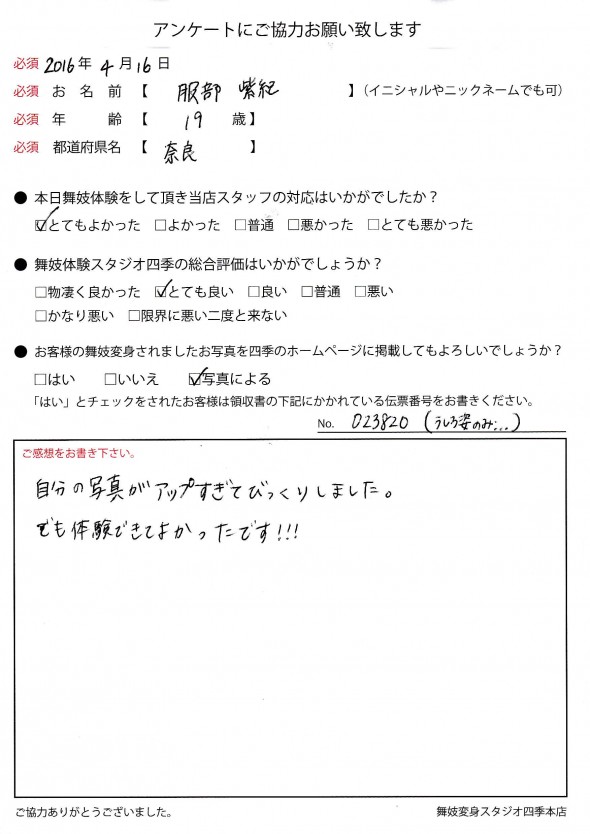 アンケートにご協力お願い致します
必須 2016年 4月16日
必須 お 名 前 【 服部 紫紀 】(イニシャルやニックネームでも可)
必須 年 齢 【 19 歳】
必須 都道府県名 【 奈良 】
● 本日舞妓体験をして頂き当店スタッフの対応はいかがでしたか?
☑とてもよかった □よかった □普通 □悪かった □とても悪かった
● 舞妓体験スタジオ四季の総合評価はいかがでしょうか?
□物凄く良かった ☑とても良い □良い □普通 □悪い
□かなり悪い □限界に悪い二度と来ない
● お客様の舞妓変身されましたお写真を四季のホームページに掲載してもよろしいでしょうか?
□はい □いいえ ☑写真による
「はい」とチェックをされたお客様は領収書の下記にかかれている伝票番号をお書きください。
No. 023820 (うしろ姿のみ...)
ご感想をお書き下さい。
自分の写真がアップすぎてびっくりしました。
でも体験できてよかったです!!!
ご協力ありがとうございました。 舞妓変身スタジオ四季本店